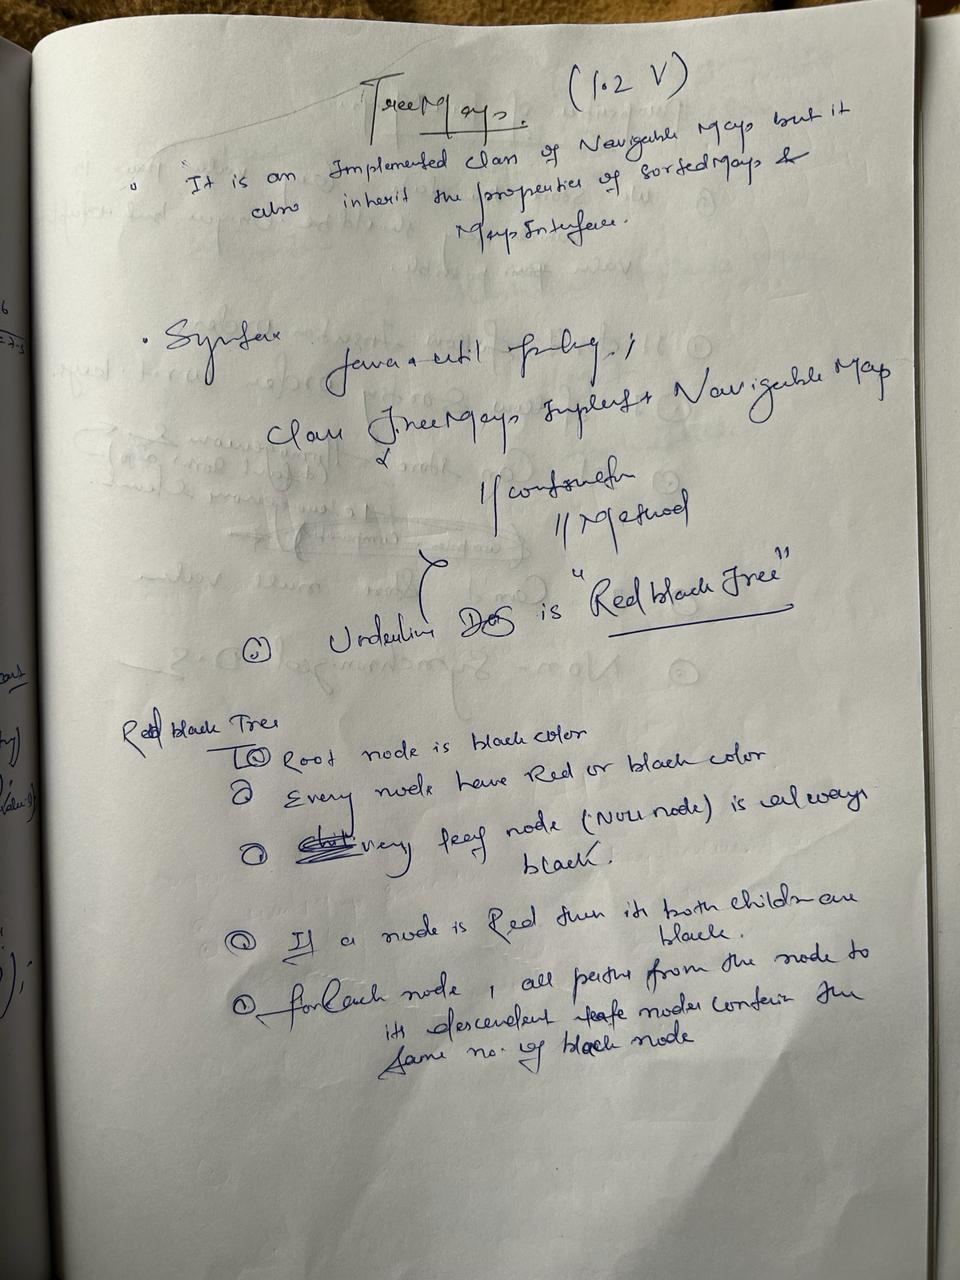 TreeMap. (1.2 V)
It is an Implemented class of Navigable Map but it
also inherit the properties of SortedMap &
Map Interface.
Syntax
java. util ;
Class TreeMap Navigable Map
{
//
// Method
}
Underline DS is "Red black Tree"
Red black Tree
Root node is black color
Every node have Red or black color
very leaf node (NULL node) is always
black.
If a node is Red then its both childs are
black.
for Each node, all paths from the node to
its descendent leafe nodes contain the
same no. of black node